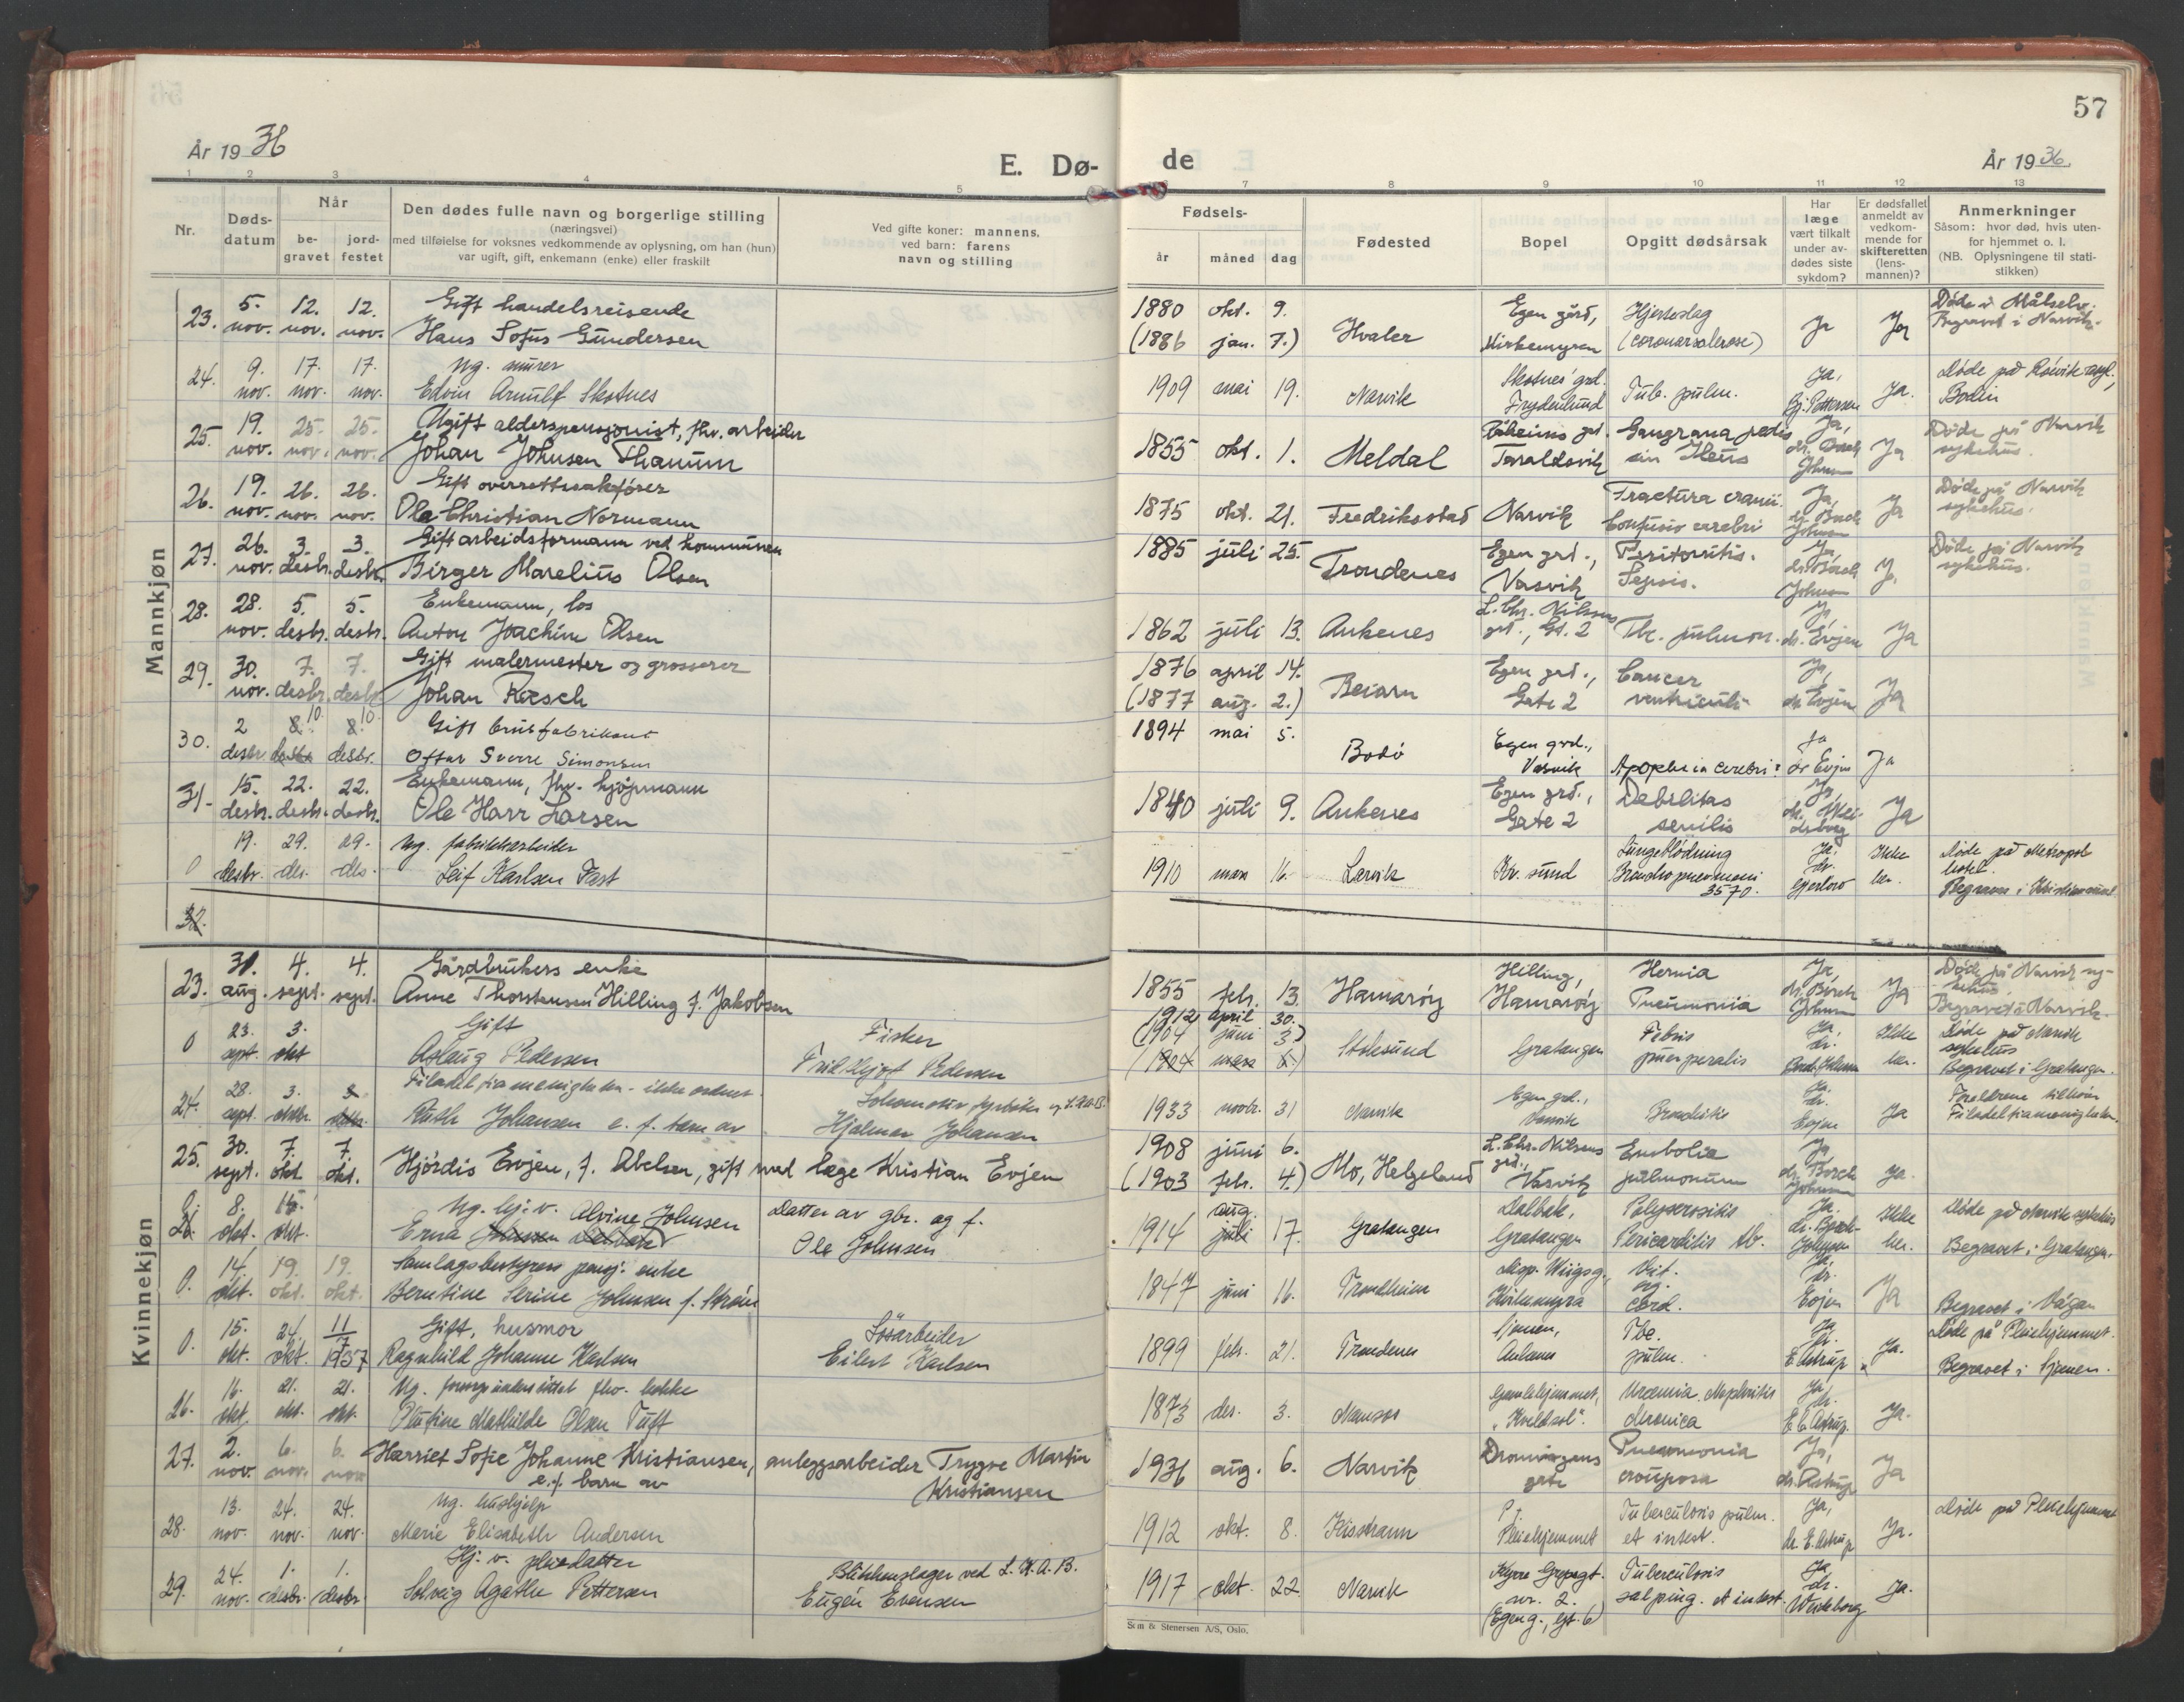 År 1936
E. Dø-
1 2 3 4 5
Nr.
Døds-
datum
Når
be-
gravet
jord-
festet
Den dødes fulle navn og borgerlige stilling
(næringsvei)
med tilføielse for voksnes vedkommende av oplysning, om han (hun)
var ugift, gift, enkemann (enke) eller fraskilt
Ved gifte koner: mannens,
ved barn: farens
navn og stilling
Mannkjøn
23. 5. nov. 12. nov. 12. nov.
Gift handelsreisende
Hans Sofus Gundersen
24. 9. nov. 17. nov. 17. nov.
Ug. murer
Edvin Arnulf Skotnes
25. 19. nov. 25. nov. 25. nov.
Ugift alderspensjonist, fhv. arbeider
Johan Johnsen Thanum
26. 19. nov. 26. nov. 26. nov.
Gift overrettssakfører
Ole Christian Normann
27. 26. nov. 3. desbr. 3. desbr.
Gift arbeidsformann ved kommunen
Birger Marelius Olsen
28. 28. nov. 5. desbr. 5. desbr.
Enkemann, los
Anton Joachim Olsen
29. 30. nov. 7. desbr. 7. desbr.
Gift malermester og grosserer
Johan Ræsch
30. 2 desbr 8. 10. desbr 8. 10. desbr.
Gift brusfabrikant
Ottar Sverre Simonsen
31. 15. desbr. 22. desbr. 22. desbr.
Enkemann, fhv. kjøpmann
Ole Harr Larsen
0 19. desbr. 29. des. 29. des.
Ug. fabrikkarbeider
Leif Karlsen Fast
32.
Kvinnekjøn
23. 31. aug. 4. sept. 4. sept.
Gårdbrukers enke
Anne Thorstensen Hilling f. Jakobsen
0 23. sept. 3. okt
Gift
Aslaug Pedersen
Fisker
Pedersen
24. 28. sept. 3. oktbr. 3. oktbr.
Filadelfiamenigheten - ikke ordnet.
Ruth Johansen e. f. barn av
Lokomotiv fyrbøter
Hjalmar Johansen
25. 30. sept. 7. okt 7. okt.
Hjördis Evjen, f. Abelsen, gift med læge Kristian Evjen
0. 26. 8. okt. 15. okt.
Ug. hj. v. Alvine Johnsen
Erna Johnsen Dalbakk
Datter av gbr. og f.
Ole Johnsen
0. 14. okt. 19. okt. 19. okt.
Samlagsbestyrers pensj. enke
Berntine Serine Johnsen f. Strøm
0. 15. okt. 24. okt. 11/7 1937
Gift, husmor
Ragnhild Johanne Karlsen
Løsarbeider
Eilert Karlsen
26. 16. okt. 21. okt. 21. okt.
Ug. forsorgsunderstøttet fhv. kokke
Olufine Mathilde Olsen Tuft
27. 2. nov. 6. nov. 6. nov.
Harriet Sofie Johanne Kristiansen,
e. f. barn av
anleggsarbeider Trygve Martin
Kristiansen
28. 13. nov. 24. nov. 24. nov.
Ug. hushjelp
Marie Elisabeth Andersen
29. 24. nov. 1. desbr. 1. desbr.
Hj. v. pleiedatter
Solveig Agathe Pettersen
Blikkenslager ved L.K.A.B.
Eugén Evensen
57
de
År 1936.
7 8 9 10 11 12 13
Fødsels-
år måned dag
Fødested
Bopel
Opgitt dødsårsak
Har
læge
vært tilkalt
under av-
dødes siste
sykdom?
Er dødsfallet
anmeldt av
vedkom-
mende for
skifteretten
(lens-
mannen)?
Anmerkninger
Såsom: hvor død, hvis uten-
for hjemmet o. l.
(NB. Oplysningene til stati-
stikken)
1880 okt. 9.
(1886 jan. 7.)
Hvaler
Egen gård,
Kirkemyren
Hjerteslag
(coronarsclerose)
Ja
Ja
Døde i Målselv.
Begravet i Narvik.
1909 mai 19.
Narvik
Skotnes' grd.
Frydenlund
Tub. pulm.
Ja,
Bj. Pettersen
Ja.
Døde på Røsvik
Bodin
1855 okt. 1.
Meldal
Taraldsvik
Gangræna pedis
sin Ileus
Ja,
dr. Borch
Johnsen
Ja
Døde på Narvik
sykehus.
1875 okt. 21.
Fredriksstad
Narvik
Fractura cranii.
Confusio cerebri
Ja,
dr. Borch
Johnsen
Ja
Døde på Narvik
sykehus.
1885 juli 25.
Trondenes
Egen grd.,
Vasvik
Peritonitis.
Sepsis.
Ja,
dr. Borch
Johnsen
Ja
Døde på Narvik
sykehus.
1862 juli 13.
Ankenes
L. Chr. Nilssens
grd., Gt. 2
Tbc. pulmon.
Ja,
dr. Evjen
Ja
1876 april 14.
(1877 aug. 2.)
Beiarn
Egen grd.,
Gate 2
Cancer
ventriculi
Ja,
dr. Evjen
Ja
1894 mai 5.
Bodö
Egen grd.,
Vasvik
Apoplexia cerebri
Ja
dr Evjen
Ja
1840 juli 9.
Ankenes
Egen grd.,
Gate 2
Debilitas
senilis
Ja,
Ja
1910 mars 16.
Larvik
Kr. sund
Lungeblödning
Bronchopneumoni
3570.
Ja,
dr.
Gjerløw
Ikke
her.
Døde på Metropol
hotel.
Begravet i Kristiansund
1855 febr. 13.
Hamarøy
Hilling,
Hamarøy
Hernia
Pneumonia
Ja,
dr. Borch
Johnsen
Ja
Døde på Narvik sy-
kehus.
Begravet i Narvik.
1912 april 30.
(1904 juni 3)
(1904 mars 5.)
Stokesund
Gratangen
Febris
puerperalis
Ja,
dr.
Borch Johnsen
Ikke
her.
Døde på Narvik
sykehus
Begravet i Gratangen.
1933 novbr. 31
Narvik
Egen grd.,
Vasvik
Bronkitis
Ja.
dr.
Evjen
Ja
Foreldrene tilhører
Filadelfiamenigheten.
1908 juni 6.
(1903 febr. 4.)
Mo, Helgeland
L. Chr. Nilssens
grd.,
Vasvik
Embolia
pulmonum
Ja
dr. Borch
Johnsen
Ja.
aug.
1914 juli 17.
Gratangen
Dalbak,
Gratangen
Polyserositis
Pericarditis tb.
Ja.
dr. Borch-
Johnsen
Ikke
her.
Døde på Narvik sykehus
Begravet i Gratangen.
1847 juni 16.
Trondheim
Kirkemyra
Vit.
org.
cord.
Ja.
dr.
Evjen
Ja
Begravet i Vågan
1899 febr. 21.
Trondenes
Sjomen,
Ankenes
Tbc.
pulm.
Ja
dr.
E. Astrup
Ja.
Døde på Pleiehjemmet.
Begravet i Sjomen.
1873 des. 3.
Namsos
Gamlehjemmet,
„Kveldsol".
Uræmia. Nephritis
chronica
Ja
dr.
E. C. Astrup.
Ja.
1936 aug. 6.
Narvik
Dronningens
gate
Pneumonia
crouposa
Ja,
dr. Astrup
Ja
1912 okt. 8.
Kistrann
P. t.
Pleiehjemmet
Tuberculosis pulm.
et intest.
Ja,
dr. E. Astrup
Ja.
Døde på Pleiehjemmet
1917 okt. 22.
Narvik
nr. 2.
(Egen g., gt. 6)
Tuberculosis
salping. et intest.
Ja
dr.
Weideborg
Ja.
Sem & Stenersen A/S, Oslo.